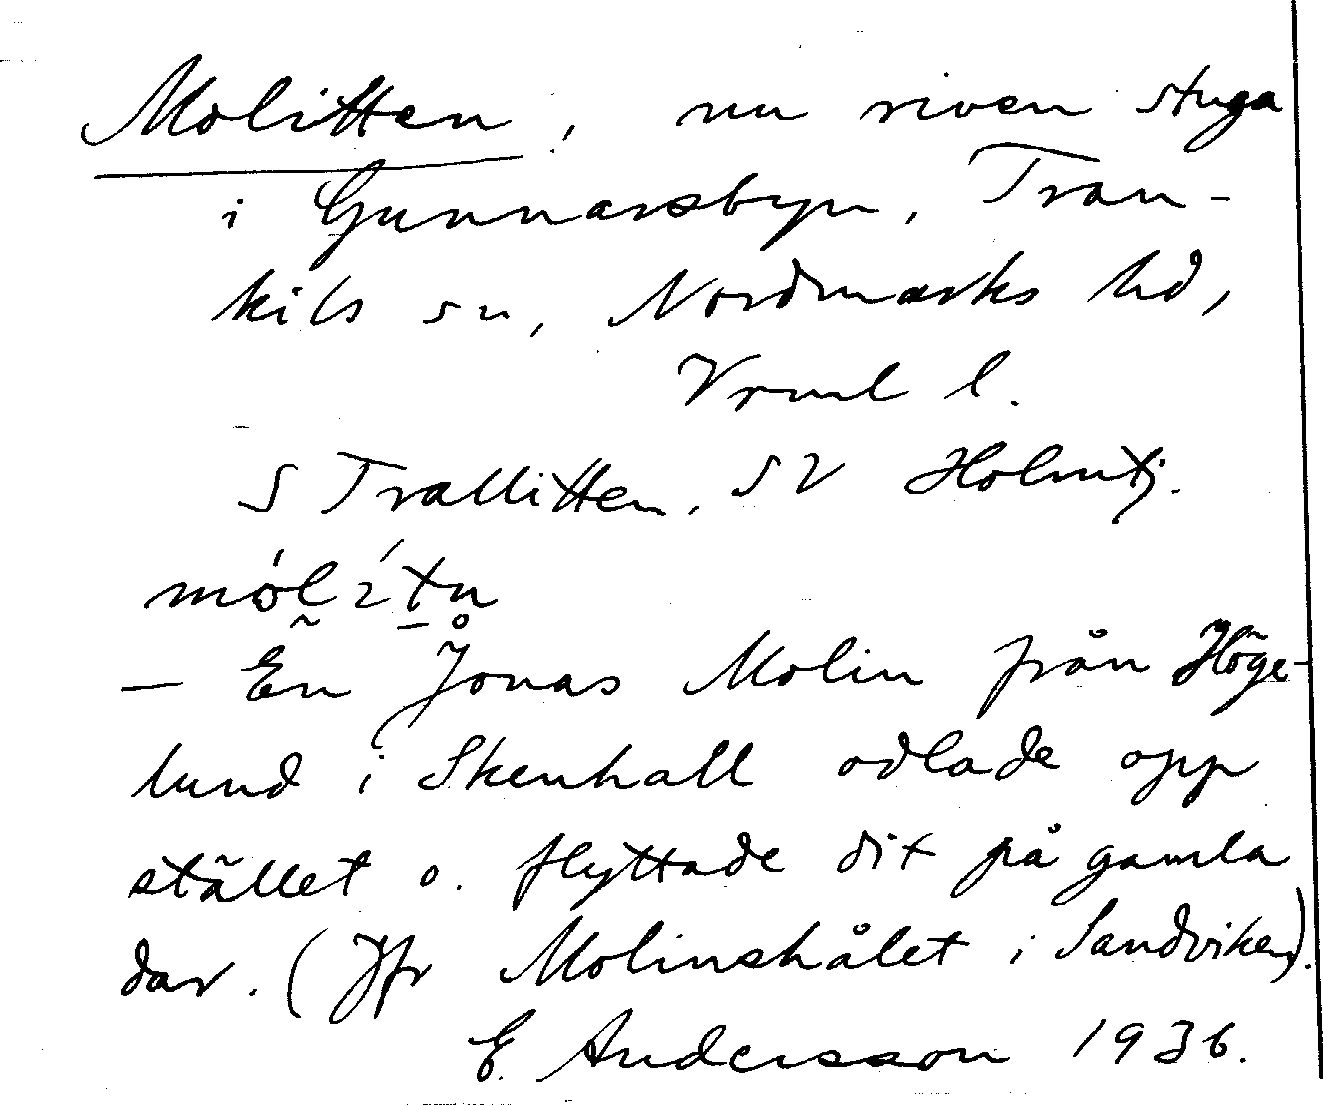 Molitten, nu riven stuga
i Gunnarsbyn, Tran-
kils sn, Nordmarks hd,
Vrml l.
S Trallitten, SV Holmtj.
— En Jonas Molin från Höge-
lund i Skenhall odlade opp
stället o. flyttade dit på gamla
dar. (Jfr Molinshålet i Sandviken).
E. Andersson 1936.